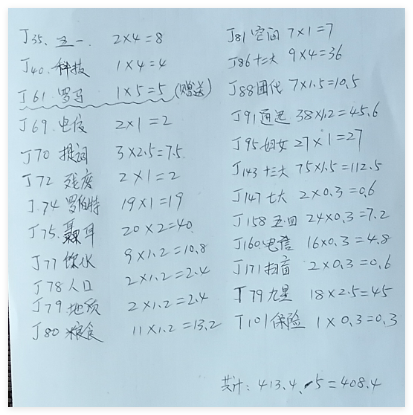 J35. 五一. 2×4=8
J40. 科技 1×4=4
J61. 罗马 1×5=5 (赠送)
J69. 电信 2×1=2
J70 提词 3×2.5=7.5
J72 残废 2×1=2
J.74 罗伯特 19×1=19
J75. 聂耳 20×2=40
J77 优化 9×1.2=10.8
J78 人口 2×1.2=2.4
J79. 地质 2×1.2=2.4
J80 粮食 11×1.2=13.2
J81 空间 7×1=7
J86 十六 9×4=36
J88 团代 7×1.5=10.5
J91 通迅 38×1.2=45.6
J95 妇女 27×1=27
J143 十三大 75×1.5=112.5
J147 七大 2×0.3=0.6
J158 五四 24×0.3=7.2
J160 电信 16×0.3=4.8
J171 扫盲 2×0.3=0.6
T79 九星 18×2.5=45
T101 保险 1×0.3=0.3
共计: 413.4-5=408.4